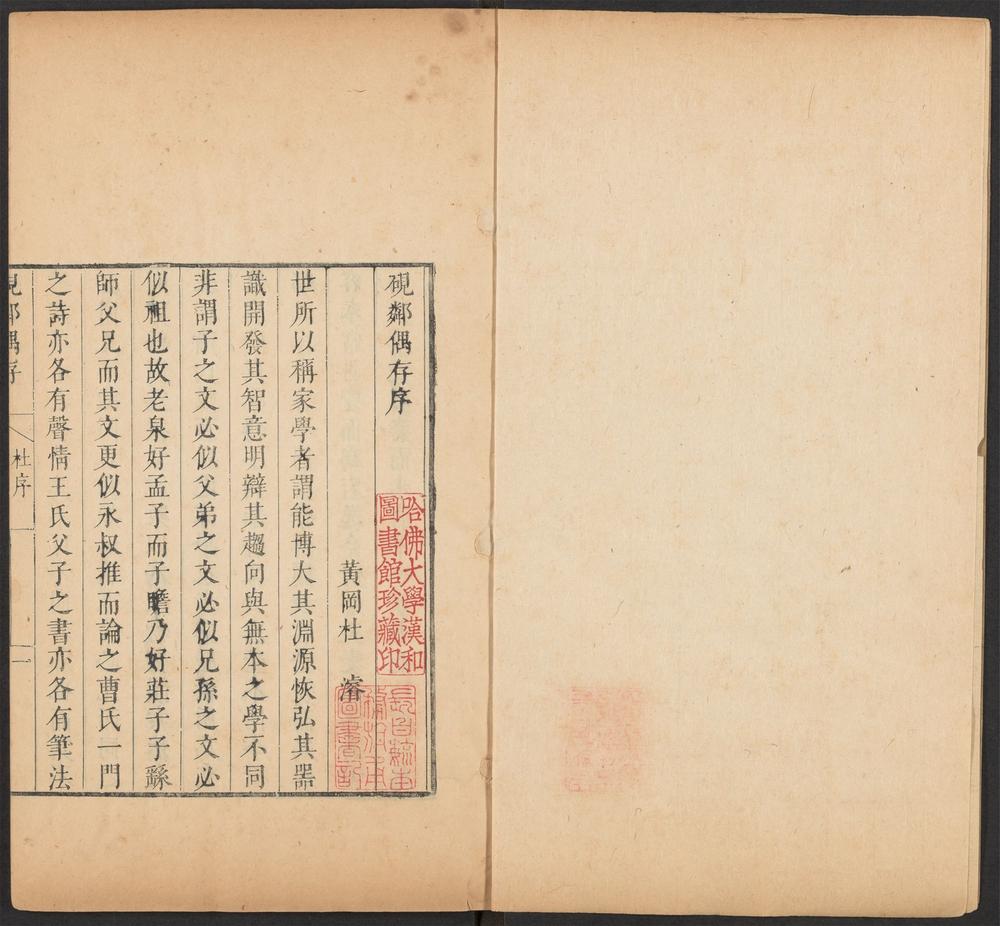 硯鄰偶存序
黃岡杜濬
世所以稱家學者謂能博大其淵源恢弘其噐
識開發其智意明辯其趨向與無本之學不同
非謂子之文必似父弟之文必似兄孫之文必
似祖也故老泉好孟子而子瞻乃好莊子子繇
師父兄而其文更似永叔推而論之曹氏一門
之詩亦各有聲情王氏父子之書亦各有筆法
硯鄰偶存
杜序
一
哈佛大學漢和
圖書館珍藏印
圖書記